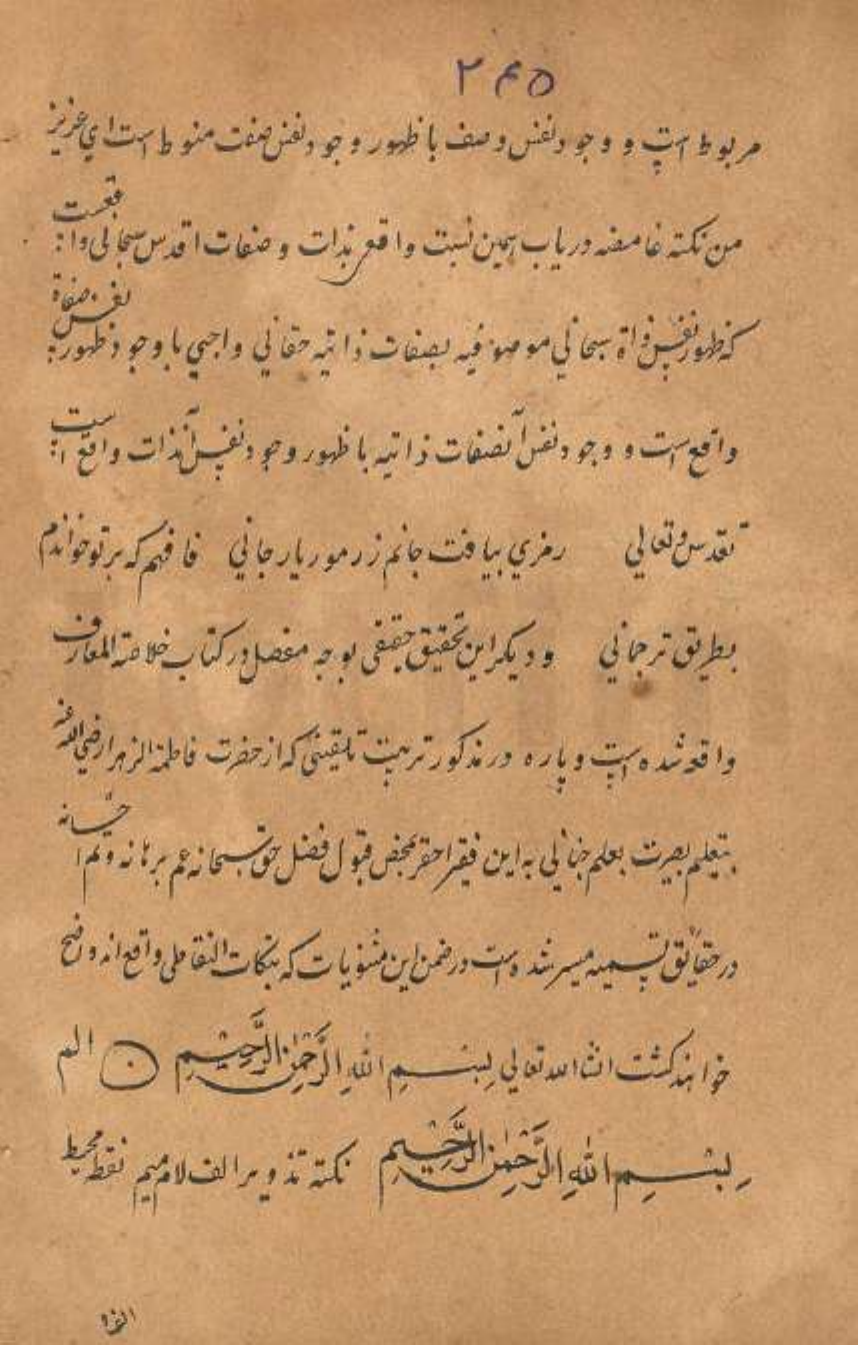 ۲۴۵
مربوط است و وجود نفس وصف با ظهور وجود نفس صفت منوط است ای عزیز
من نکته غامضه دریاب همین نسبت واقعی بذات و صفات اقدس سبحانی واقعست
که ظهور نفس ذاة سبحانی موصوفیه بصفات ذاتیه حقانی واجبی با وجود ظهور نفس صفاة
واقع است و وجود نفس آنصفات ذاتیه با ظهور وجود نفس آنذات واقع است
تقدس وتعالی رمزی بیافت جانم ز رموز یار جانی فافهم که بر تو خواندم
بطریق ترجمانی و دیگر این تحقیق حقیقی بوجه مفصل در کتاب خلاصة المعارف
واقعه شده است و پاره در مذکور تربیت تلقینی که از حضرت فاطمة الزهرا رضی الله عنه
بتعلیم بصیرت بعلم جنانی به این فقیر احقر بمحض قبول فضل حق سبحانه عم برهانه و تم احسانه
در حقایق تسمیه میسر شده است در ضمن این مثنویات که بنکات النقاطی واقع اند واضح
خواهند گشت انشاالله تعالی بِسْمِ اللهِ الرَّحْمٰنِ الرَّحِیْمِ الم
بِسْمِ اللهِ الرَّحْمٰنِ الرَّحِیْمِ نکته تدویر الف لام میم نقطه محیط